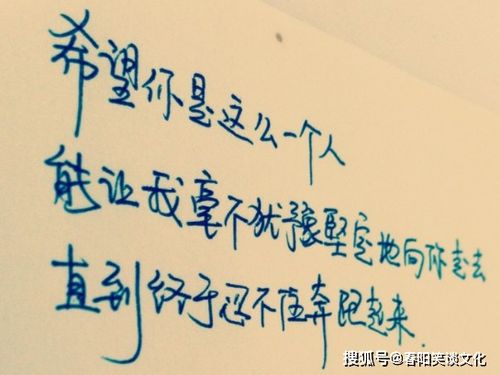 希望你是这么一个人
能让我毫不犹豫堅定地向你走去
直到终于忍不住奔跑起来.
搜狐号@春阳笑谈文化